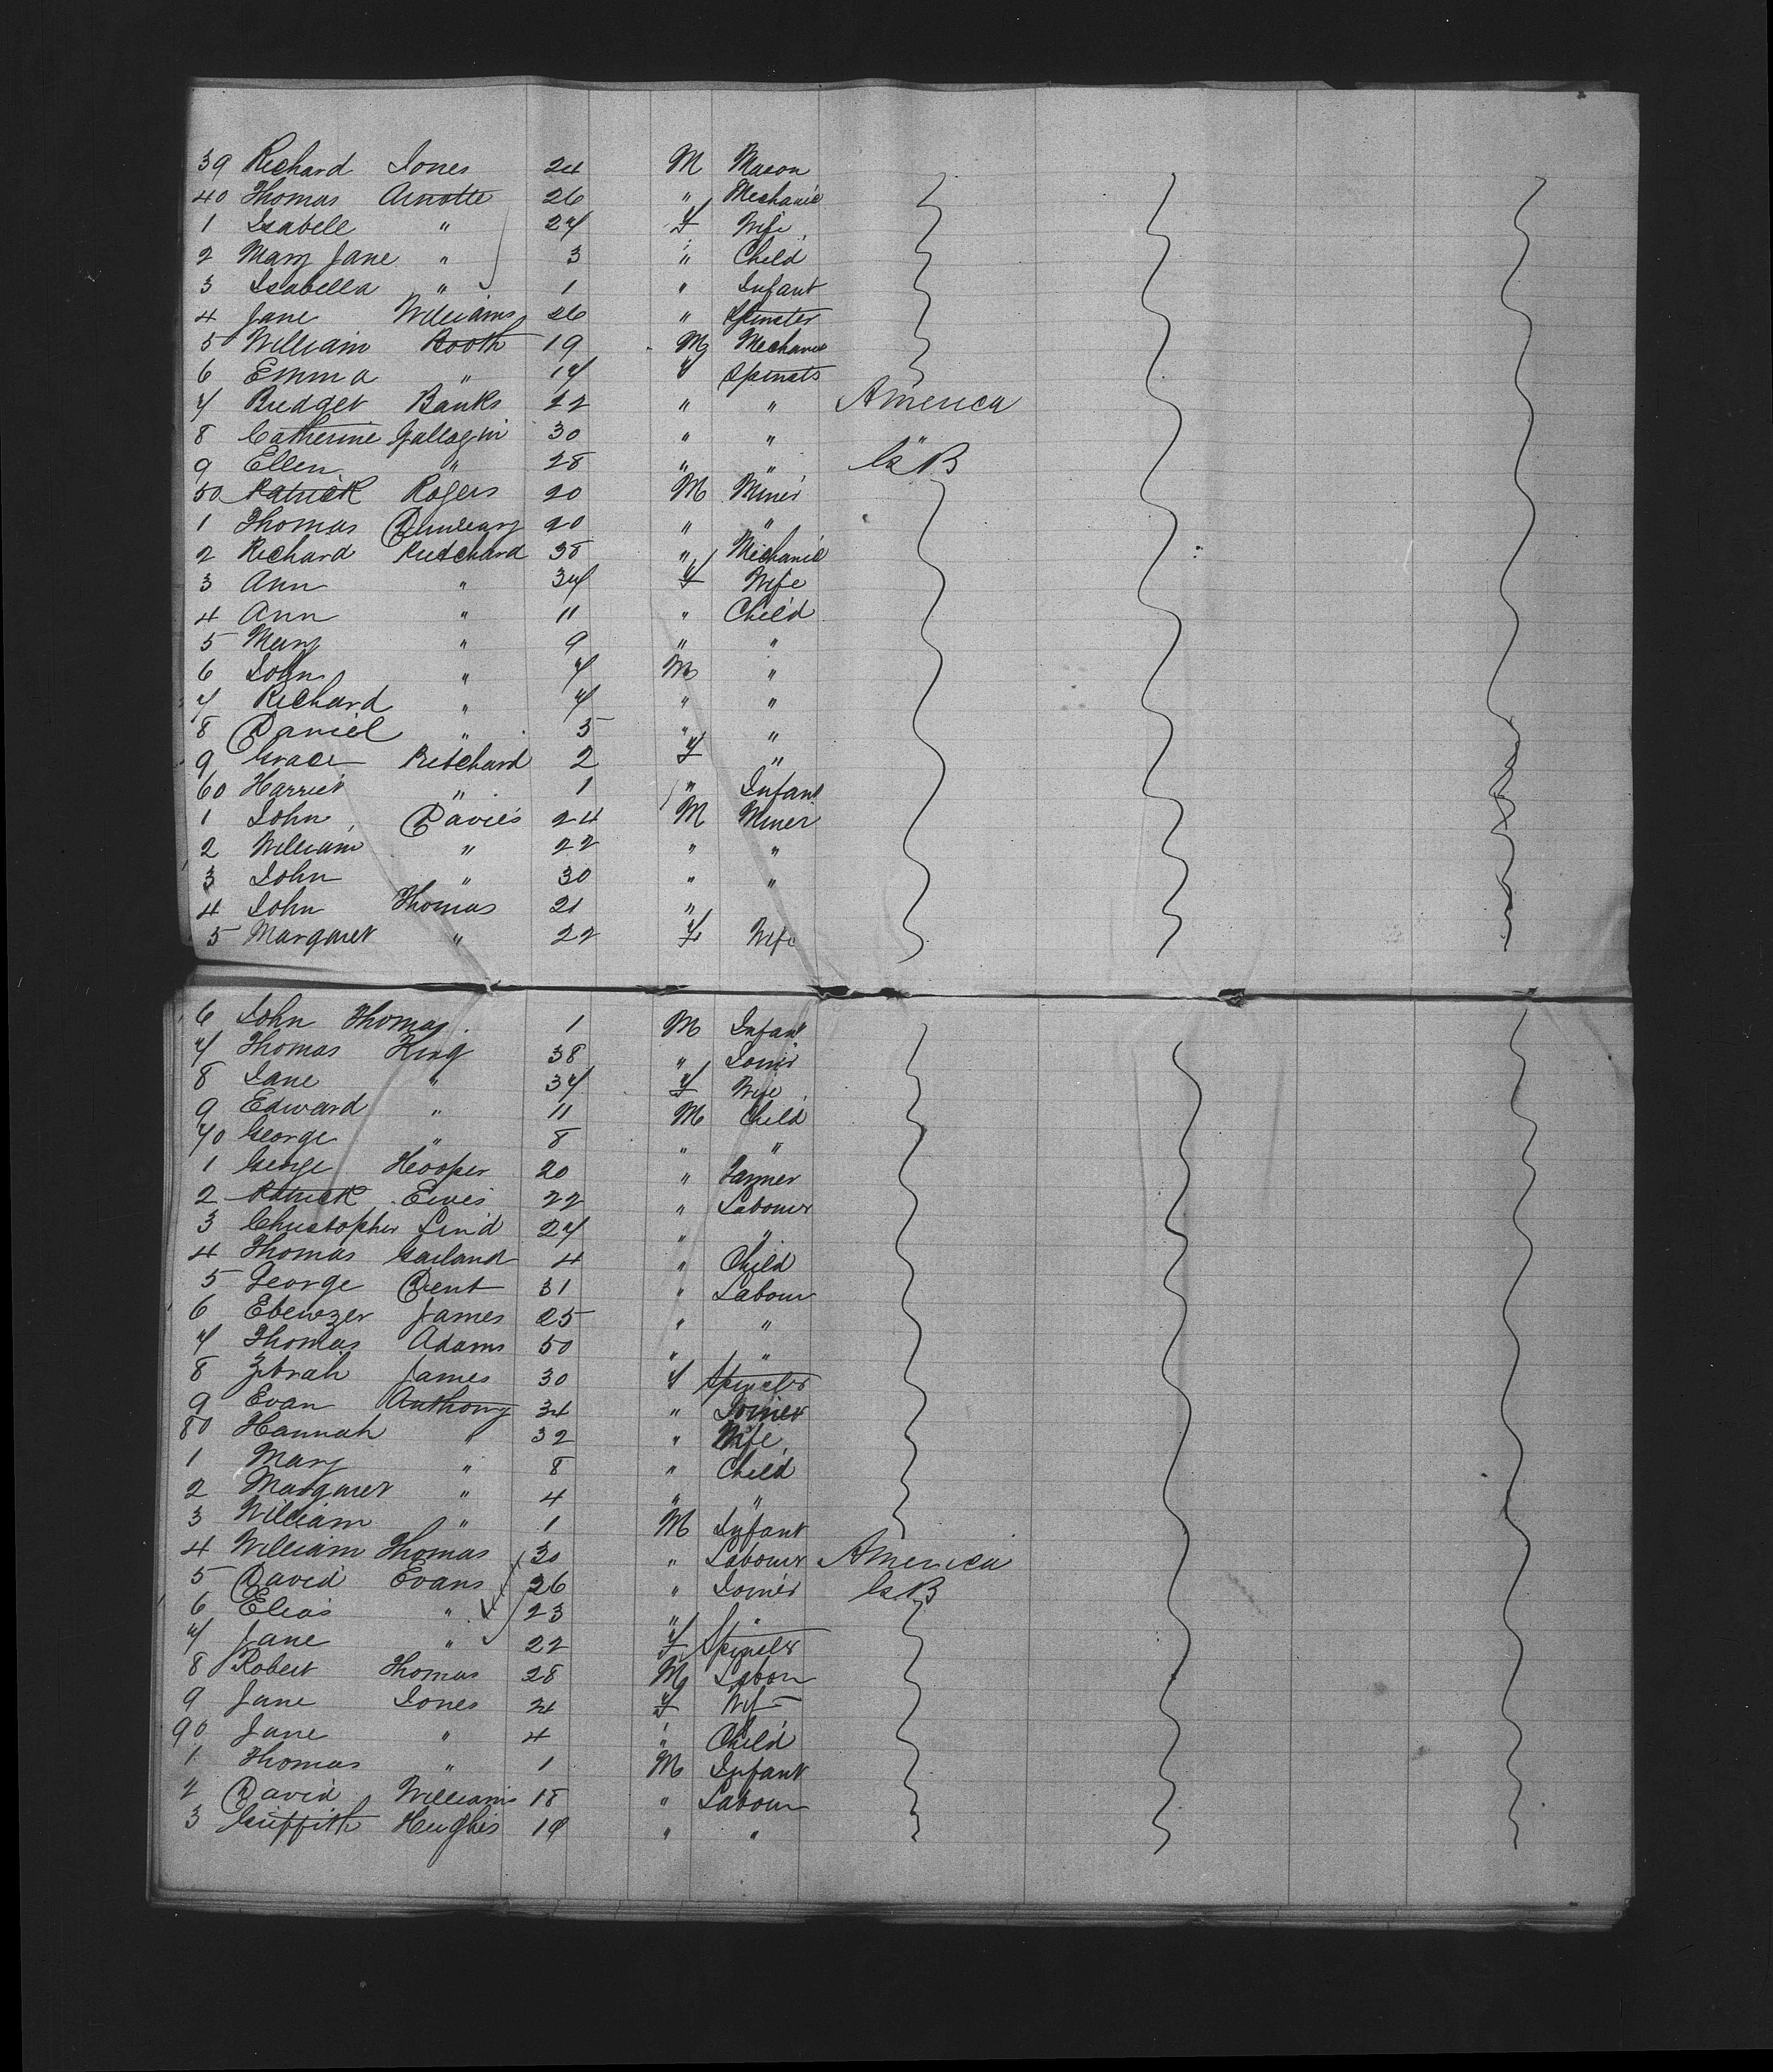 39 Richard Jones 24 M Mason
40 Thomas Arnotte 26 " Mechanic
1 Isabell " 27 F Wife
2 Mary Jane " 3 " Child
3 Isabella " 1 " Infant
4 Jane Williams 26 " Spinster
5 William Booth 19 M Mechanic
6 Emma " 17 F Spinster
7 Bridget Banks 22 " " America
8 Catherine Gallagin 30 " " "
9 Ellen " 28 " " Gs B
50 Patrick Rogers 20 M Miner
1 Thomas Dunleavy 20 " "
2 Richard Pritchard 38 " Mechanic
3 Ann " 37 F Wife
4 Ann " 11 " Child
5 Mary " 9 " "
6 John " 7 M "
7 Richard " 7 " "
8 Daniel " 5 " "
9 Grace Pritchard 2 F "
60 Harriet " 1 " Infant
1 John Davies 24 M Miner
2 William " 22 " "
3 John " 30 " "
4 John Thomas 21 "
5 Margaret " 22 F Wife
6 John Thomas 1 M Infant
7 Thomas King 38 " Joiner
8 Jane " 37 F Wife
9 Edward " 11 M Child
70 George " 8 " "
1 George Hooper 20 " Farmer
2 Patrick 22 " Labourer
3 Christopher Lind 27 " "
4 Thomas Garland 4 " Child
5 George Dent 31 " Labour
6 Ebenezer James 25 " "
7 Thomas Adams 50 " "
8 James 30 F Spinster
9 Evan Anthony 34 " Joiner
80 Hannah " 32 " Wife
1 Mary " 8 " Child
2 Margaret " 4 " "
3 William " 1 M Infant
4 William Thomas 30 " Labourer America
5 David Evans 26 " Joiner Gs B
6 Elias " 23 "
7 Jane " 22 F Spinster
8 Robert Thomas 28 M Labour
9 Jane Jones 24 F Wife
90 Jane " 4 " Child
1 Thomas " 1 M Infant
2 David Williams 18 " Labour
3 Griffith Hughes 19 " "